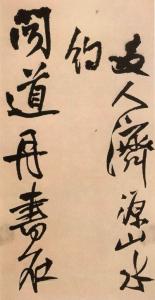 友人濟源山水
約
聞道丹書在